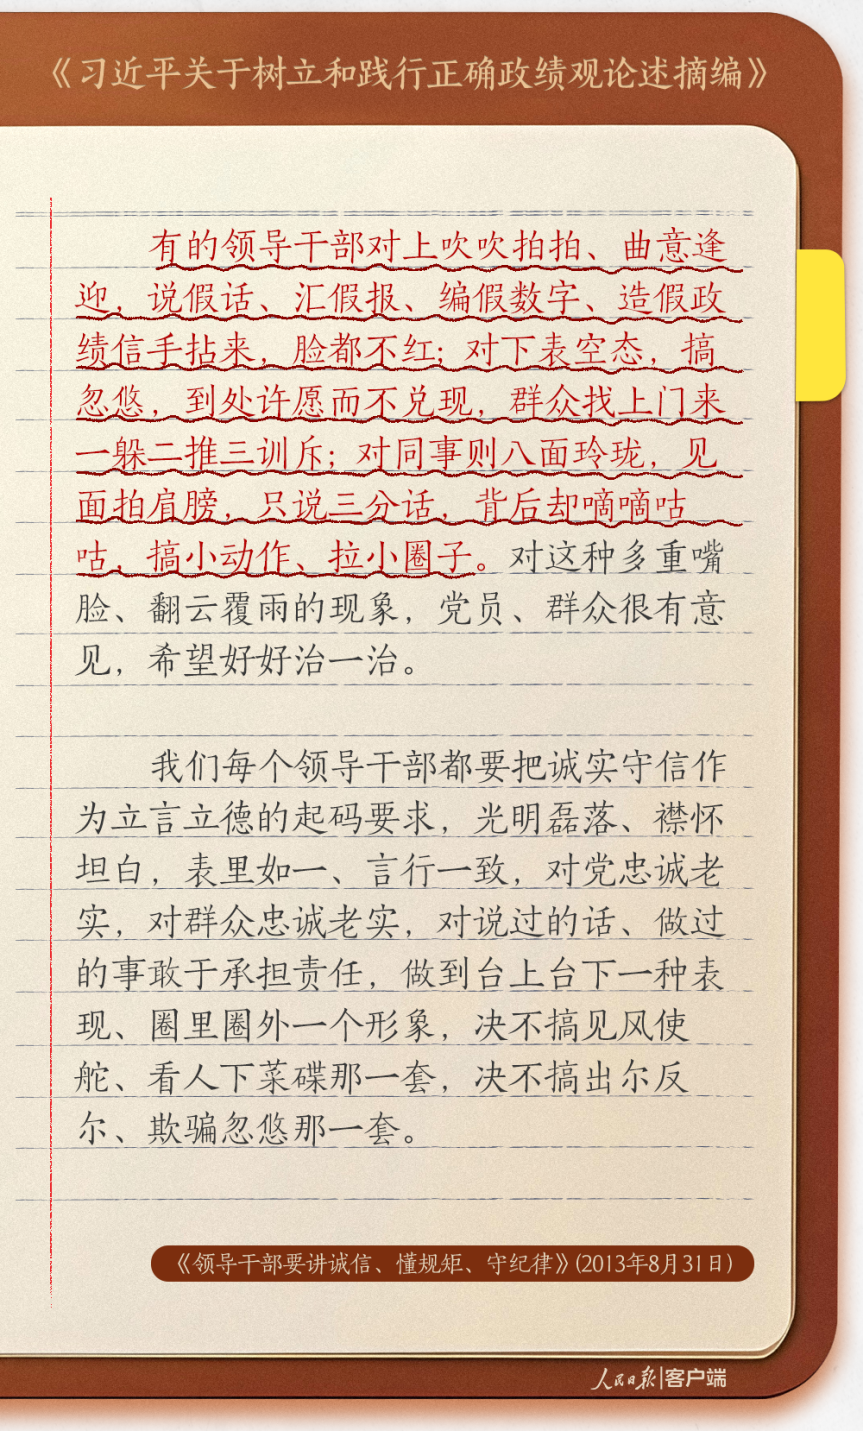 《习近平关于树立和践行正确政绩观论述摘编》
有的领导干部对上吹吹拍拍、曲意逢
迎，说假话、汇假报、编假数字、造假政
绩信手拈来，脸都不红；对下表空态，搞
忽悠，到处许愿而不兑现，群众找上门来
一躲二推三训斥；对同事则八面玲珑，见
面拍肩膀，只说三分话，背后却嘀嘀咕
咕，搞小动作、拉小圈子。对这种多重嘴
脸、翻云覆雨的现象，党员、群众很有意
见，希望好好治一治。
我们每个领导干部都要把诚实守信作
为立言立德的起码要求，光明磊落、襟怀
坦白，表里如一、言行一致，对党忠诚老
实，对群众忠诚老实，对说过的话、做过
的事敢于承担责任，做到台上台下一种表
现、圈里圈外一个形象，决不搞见风使
舵、看人下菜碟那一套，决不搞出尔反
尔、欺骗忽悠那一套。
《领导干部要讲诚信、懂规矩、守纪律》(2013年8月31日)
人民日报|客户端